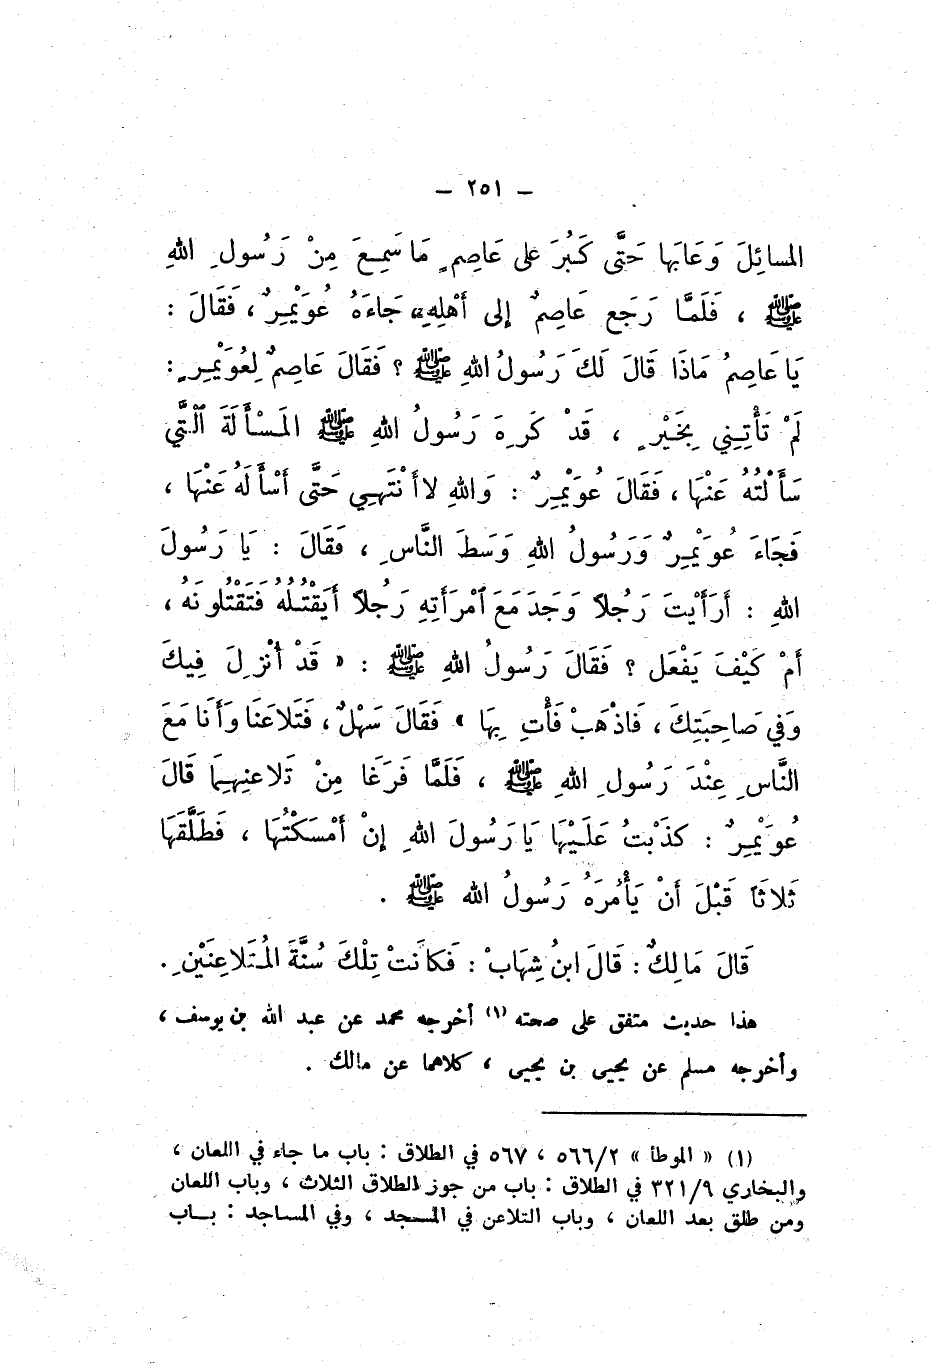 – ٢٥١ –
المسائِلَ وَعَابَها حَتَّى كَبُرَ على عَاصِمٍ مَا سَمِعَ مِنْ رَسُولِ اللهِ
ﷺ ، فَلَمَّا رَجَع عَاصِمٌ إلى أَهْلِهِ، جَاءَهُ عُوَيْمِرٌ ، فَقَالَ :
يَا عَاصِمُ مَاذَا قَالَ لَكَ رَسُولُ اللهِ ﷺ ؟ فَقَالَ عَاصِمٌ لِعُوَيْمِرٍ :
لَمْ تَأْتِنِي بِخَيْرٍ ، قَدْ كَرِهَ رَسُولُ اللهِ ﷺ المَسْأَلَةَ ٱلَّتي
سَأَلْتُهُ عَنْهَا ، فَقَالَ عُوَيْمِرٌ : وَاللهِ لا أَنْتَهِي حَتَّى أَسْأَلَهُ عَنْهَا ،
فَجَاءَ عُوَيْمِرٌ وَرَسُولُ اللهِ وَسَطَ النَّاسِ ، فَقَالَ : يَا رَسُولَ
اللهِ : أَرَأَيْتَ رَجُلاً وَجَدَ مَعَ ٱمْرَأَتِهِ رَجُلاً أَيَقْتُلُهُ فَتَقْتُلُونَهُ ،
أَمْ كَيْفَ يَفْعَل ؟ فَقَالَ رَسُولُ اللهِ ﷺ : « قَدْ أُنْزِلَ فِيكَ
وَفي صَاحِبَتِكَ ، فَاذْهَبْ فَأْتِ بِهَا » فَقَالَ سَهْلٌ ، فَتَلاعَنَا وَأَنَا مَعَ
النَّاسِ عِنْدَ رَسُولِ اللهِ ﷺ ، فَلَمَّا فَرَغَا مِنْ تَلاعنِهِمَا قَالَ
عُوَيْمِرٌ : كذَبْتُ عَلَيْهَا يَا رَسُولَ اللهِ إِنْ أَمْسَكْتُهَا ، فَطَلَّقَهَا
ثَلاثَاً قَبْلَ أَنْ يَأْمُرَهُ رَسُولُ الله ﷺ .
قَالَ مَالِكٌ : قَالَ ابنُ شِهَابْ : فَكانَتْ تِلْكَ سُنَّةَ المُتَلاعِنَيْنِ .
هذا حديث متفق على صحته (١) أخرجه محمد عن عبد الله بن يوسف ،
وأخرجه مسلم عن يحيى بن يحيى ، كلاهما عن مالك .
(١) « الموطأ » ٥٦٦/٢ ، ٥٦٧ في الطلاق : باب ما جاء في اللعان ،
والبخاري ٣٢١/٩ في الطلاق : باب من جوز الطلاق الثلاث ، وباب اللعان
ومن طلق بعد اللعان ، وباب التلاعن في المسجد ، وفي المساجد : بــاب